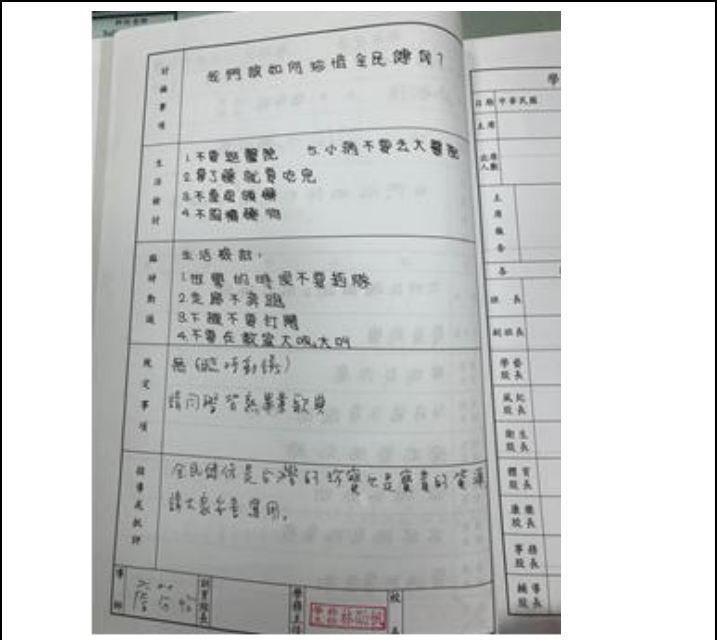 討論事項
我們該如何珍惜全民健保?
生活檢討
1.不要逛醫院 5.小病不要去大醫院
2.拿了藥就要吃完
3.不重複領藥
4.不囤積藥物
臨時動議
生活檢討:
1.放學的時候不要插隊
2.走路不奔跑
3.下課不要打鬧
4.不要在教室大吼大叫
決定事項
無(臨時動議)
請同學皆熟畢業歌與
指導及批評
全民健保是台灣的珍寶也是寶貴的資源
請大家善用。
導師
訓育組長
學務主任
學務主任林
校長
學
日期 中華民國
主席
出席人數
主席報告
各
班長
副班長
學藝股長
風紀股長
衛生股長
體育股長
康樂股長
事務股長
輔導股長